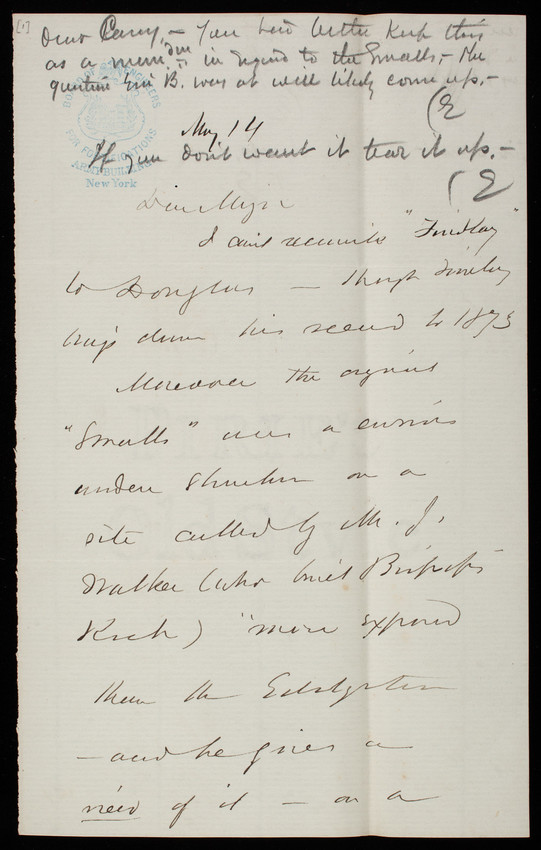 [1]
Dear Casey, – You had better keep this
as a mem dm in regard to the Smalls, – the
question Eni B. was at will likely come up. –
(E
BOARD OF ENGINEERS
FOR FORTIFICATIONS
ARMY BUILDING
New York
May 14
If you don't want it tear it up. –
(E
Dear Major
I can't reconcile "Findlay"
to Douglas – though Findlay
brings down his record to 1873
Moreover the original
"Smalls" was a curious
wooden structure on a
site called by Mr. J.
Walker (who built Bishop's
Rock) "more exposed
than the Eddystone
– and he gives a
view of it – on a